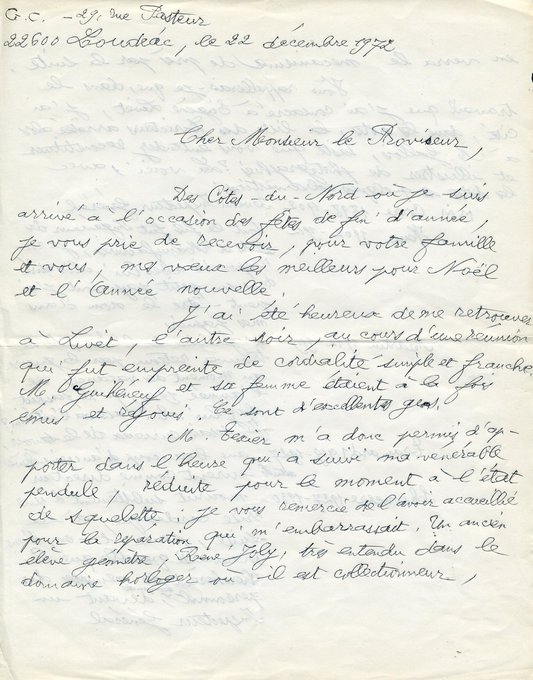 G.C. - 29, rue Pasteur
22600 Loudéac, le 22 décembre 1972
Cher Monsieur le Proviseur,
Des Côtes-du-Nord où je suis
arrivé à l'occasion des fêtes de fin d'année,
je vous prie de recevoir, pour votre famille
et vous, mes vœux les meilleurs pour Noël
et l'Année nouvelle.
J'ai été heureux de me retrouver
à Livet, l'autre soir, au cours d'une réunion
qui fut empreinte de cordialité simple et franche.
M. et sa femme étaient à la fois
émus et réjouis. Ce sont d'excellents gens.
M. m'a donc permis d'ap-
porter dans l'heure qui a suivi ma vénérable
pendule, réduite pour le moment à l'état
de squelette ; je vous remercie de l'avoir accueillie
pour la réparation qui m'embarrassait. Un ancien
élève géomètre, René Joly, très entendu dans le
domaine horloger où il est collectionneur,